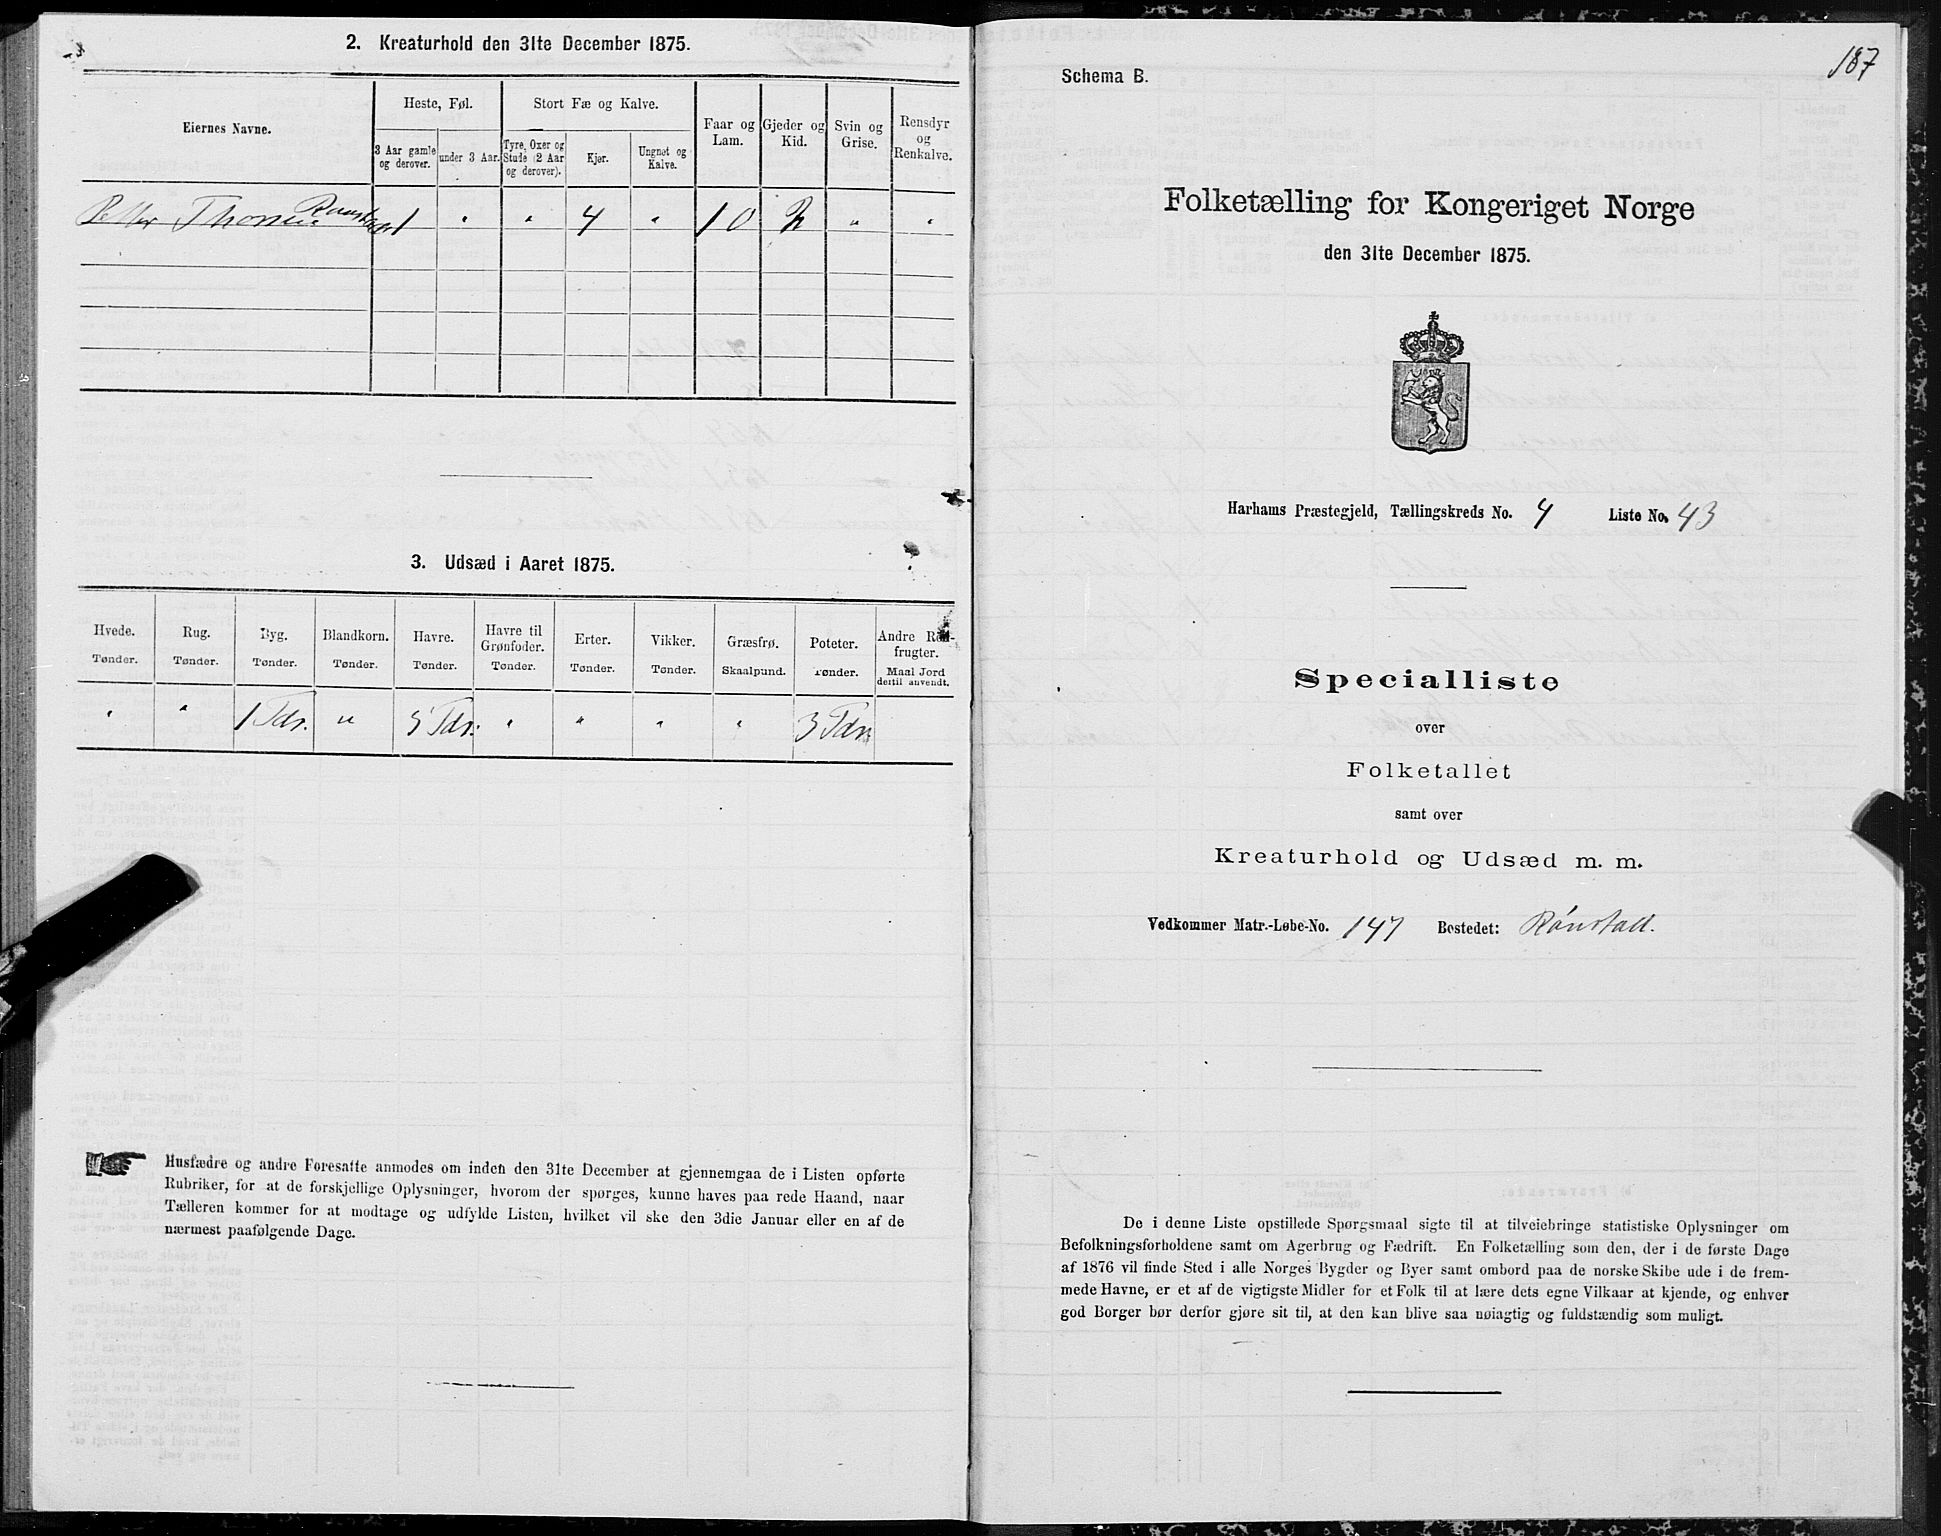 2. Kreaturhold den 31te December 1875.
Eiernes Navne.
Heste, Føl.
Stort Fæ og Kalve.
Faar og Lam.
Gjeder og Kid.
Svin og Grise.
Rensdyr og Renkalve.
3 Aar gamle og derover.
under 3 Aar.
Tyre, Oxer og Stude (2 Aar og derover).
Kjør.
Ungnøt og Kalve.
Petter Thorsen 1 " " 4 " 10 2 " "
3. Udsæd i Aaret 1875.
Hvede. Rug. Byg. Blandkorn. Havre. Havre til Grønfoder. Erter. Vikker. Græsfrø. Poteter. Andre Rodfrugter.
Tønder. Tønder. Tønder. Tønder. Tønder. Tønder. Tønder. Tønder. Skaalpund. Tønder. Maal Jord dertil anvendt.
" " 1 Tdr. " 5 Tdr. " " " " 3 Tdr
Husfædre og andre Foresatte anmodes om inden den 31te December at gjennemgaa de i Listen opførte
Rubriker, for at de forskjellige Oplysninger, hvorom der spørges, kunne haves paa rede Haand, naar
Tælleren kommer for at modtage og udfylde Listen, hvilket vil ske den 3die Januar eller en af de
nærmest paafølgende Dage.
187
Schema B.
Folketælling for Kongeriget Norge
den 31te December 1875.
Harhams Præstegjeld, Tællingskreds No. 4 Liste No. 43
Specialliste
over
Folketallet
samt over
Kreaturhold og Udsæd m. m.
Vedkommer Matr.-Løbe-No. 147 Bostedet: Rønstad.
De i denne Liste opstillede Spørgsmaal sigte til at tilveiebringe statistiske Oplysninger om
Befolkningsforholdene samt om Agerbrug og Fædrift. En Folketælling som den, der i de første Dage
af 1876 vil finde Sted i alle Norges Bygder og Byer samt ombord paa de norske Skibe ude i de frem-
mede Havne, er et af de vigtigste Midler for et Folk til at lære dets egne Vilkaar at kjende, og enhver
god Borger bør derfor gjøre sit til, at den kan blive saa nøiagtig og fuldstændig som muligt.